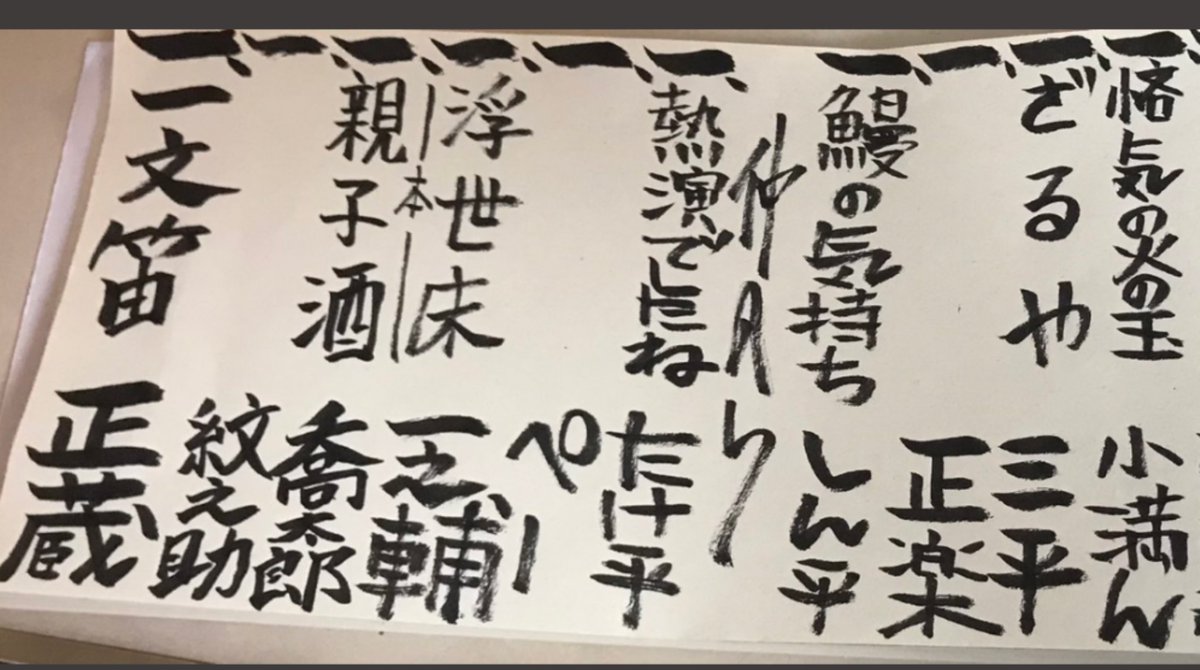 一、悋気の火の玉 小満ん
一、ざるや 三平
一、正楽
一、鰻の気持ち しん平
仲入り
一、熱演でしたね たけ平
一、ぺー
一、浮世床 一之輔
|本|
一、親子酒 喬太郎
一、紋之助
一、一文笛 正蔵